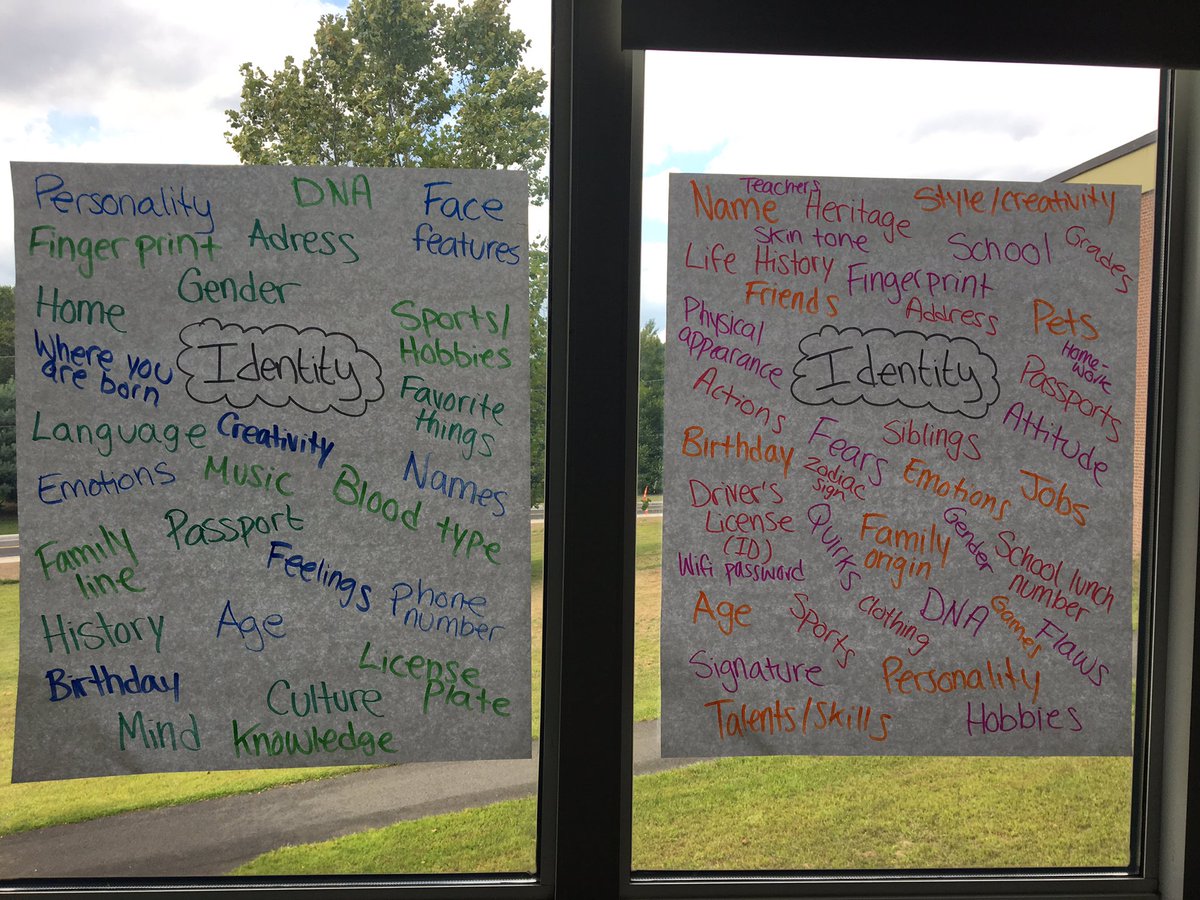 Personality
DNA
Face
features
Finger print
Adress
Gender
Home
Sports/
Hobbies
Where you
are born
Identity
Favorite
things
Language
Creativity
Emotions
Music
Blood type
Names
Passport
Family
line
Feelings
Phone
number
History
Age
License
Plate
Birthday
Culture
Mind
Knowledge
Teachers
Name
Heritage
Style/creativity
Skin tone
School
Grades
Life History
Fingerprint
Friends
Address
Pets
Physical
appearance
Identity
Home-
work
Passports
Actions
Attitude
Siblings
Fears
Birthday
Zodiac
sign
Emotions
Jobs
Driver's
License
(ID)
Quirks
Family
origin
Gender
School lunch
number
Wifi password
Age
Sports
Clothing
DNA
Games
Flaws
Signature
Personality
Talents/Skills
Hobbies